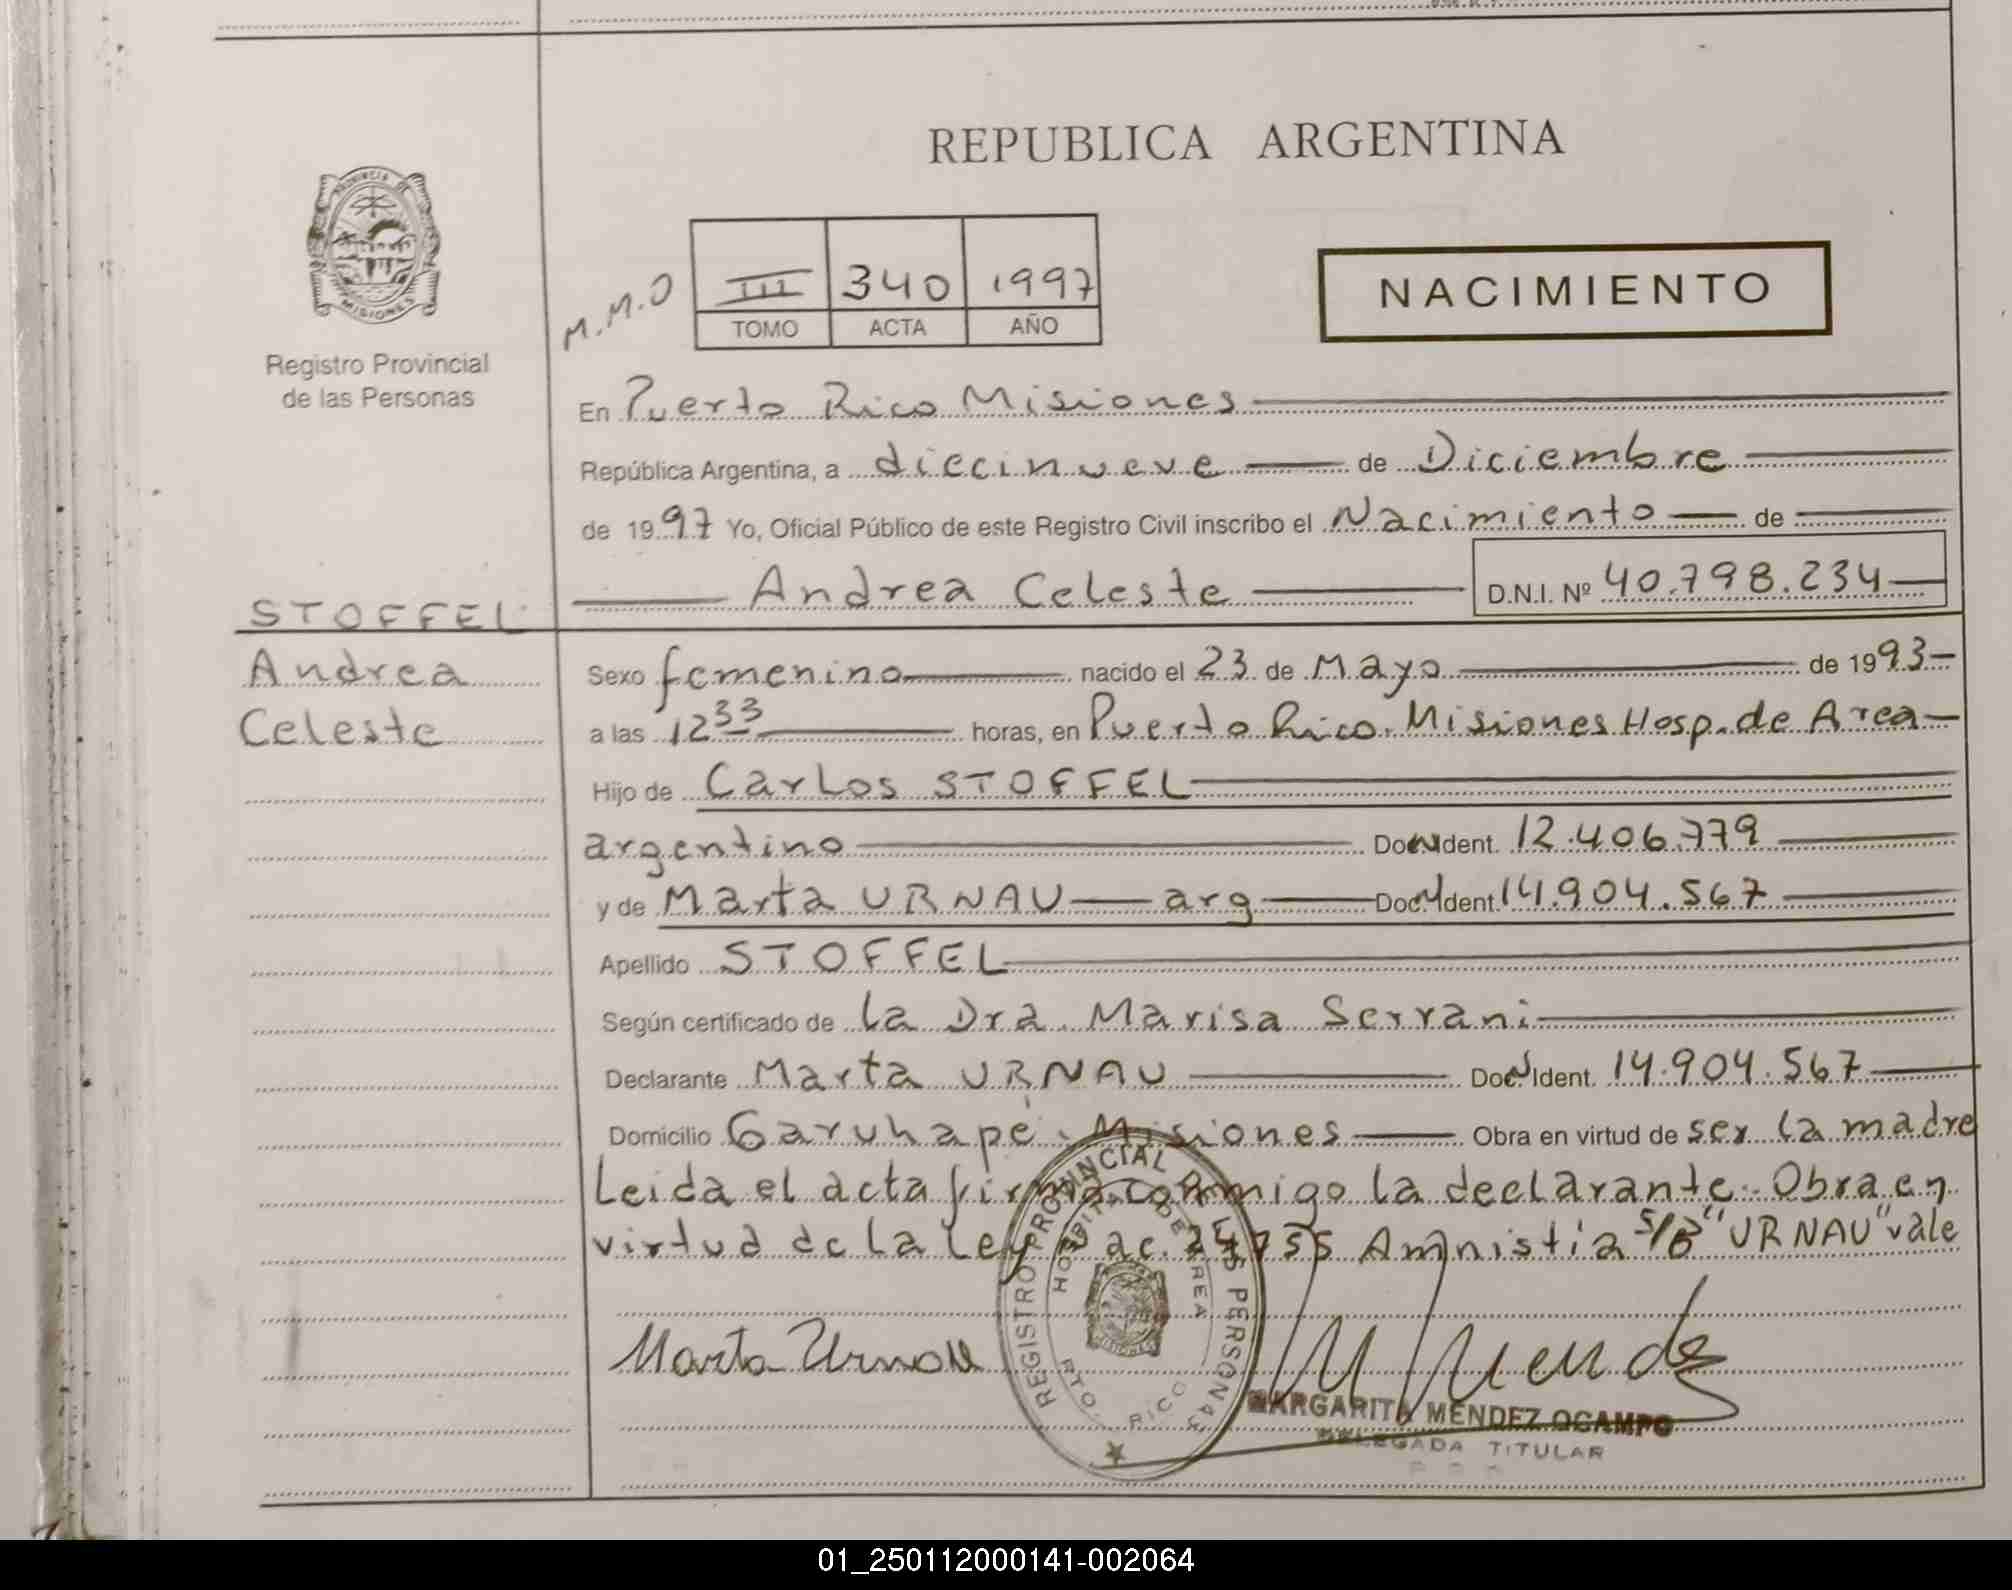 REPUBLICA ARGENTINA
PROVINCIA DE
MISIONES
Registro Provincial
de las Personas
M.M.O
III 340 1997
TOMO ACTA AÑO
NACIMIENTO
En Puerto Rico Misiones
República Argentina, a diecinueve de Diciembre
de 1997 Yo, Oficial Público de este Registro Civil inscribo el Nacimiento de
Andrea Celeste D.N.I. Nº 40.798.234
STOFFEL
Andrea
Celeste
Sexo femenino nacido el 23 de Mayo de 1993
a las 12 33 horas, en Puerto Rico. Misiones Hosp. de Area
Hijo de Carlos STOFFEL
argentino Doc. Ident. 12.406.779
y de Marta URNAU arg Doc. Ident. 14.904.567
Apellido STOFFEL
Según certificado de la Dra. Marisa Serrani
Declarante Marta URNAU Doc. Ident. 14.904.567
Domicilio Garuhapé. Misiones Obra en virtud de ser la madre
Leida el acta firma conmigo la declarante. Obra en
virtud de la Ley Nac. 24.755 Amnistía S/B "URNAU" vale
Marta Urnau
M Mendez
REGISTRO PROVINCIAL DE LAS PERSONAS
HOSPITAL DE AREA
PTO. RICO
MARGARITA MENDEZ OCAMPO
DELEGADA TITULAR
01_250112000141-002064